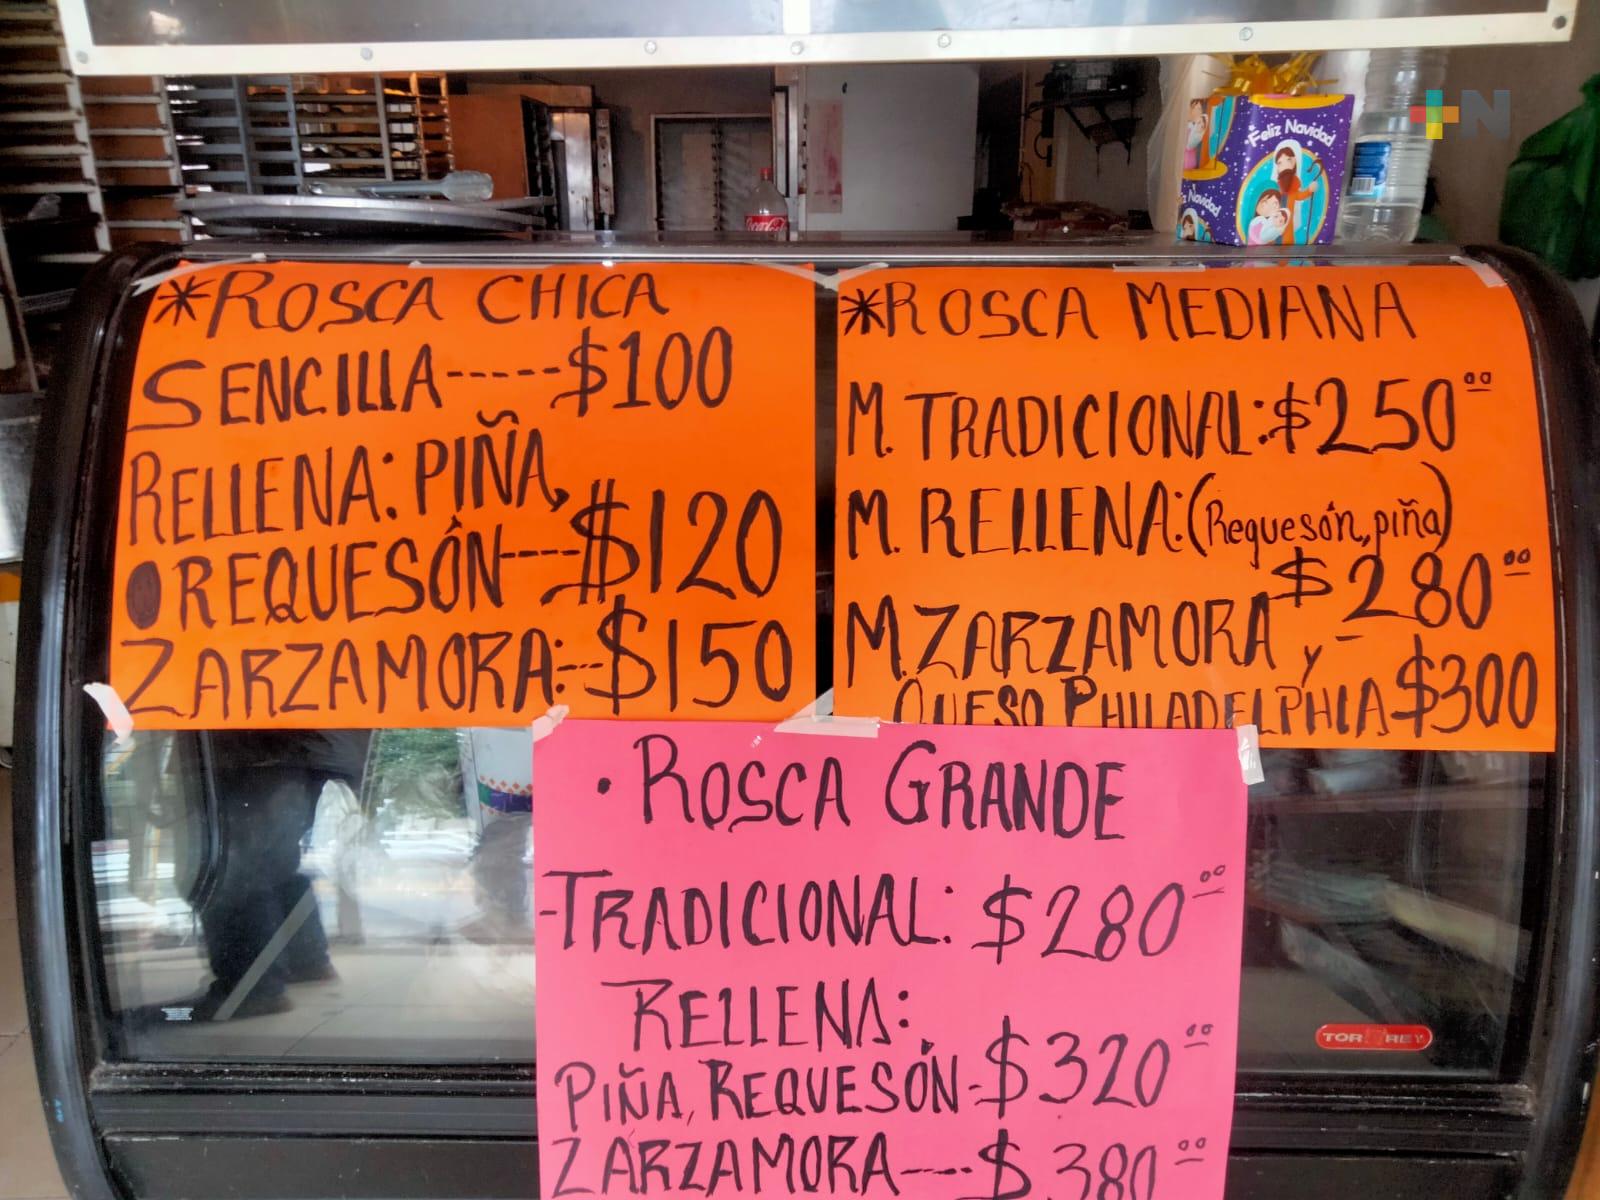 +N
Feliz Navidad
z Navidad
Coca-Cola
*ROSCA CHICA
SENCILLA-----$100
RELLENA: PIÑA,
REQUESÓN----$120
ZARZAMORA:--$150
*ROSCA MEDIANA
M. TRADICIONAL:$250.00
M. RELLENA:(Requesón, piña)
$280.00
M.ZARZAMORA y
QUESO PHILADELPHIA $300
· ROSCA GRANDE
-TRADICIONAL: $280.00
RELLENA:
PIÑA, REQUESÓN-$320.00
ZARZAMORA----$380.00
TOR REY